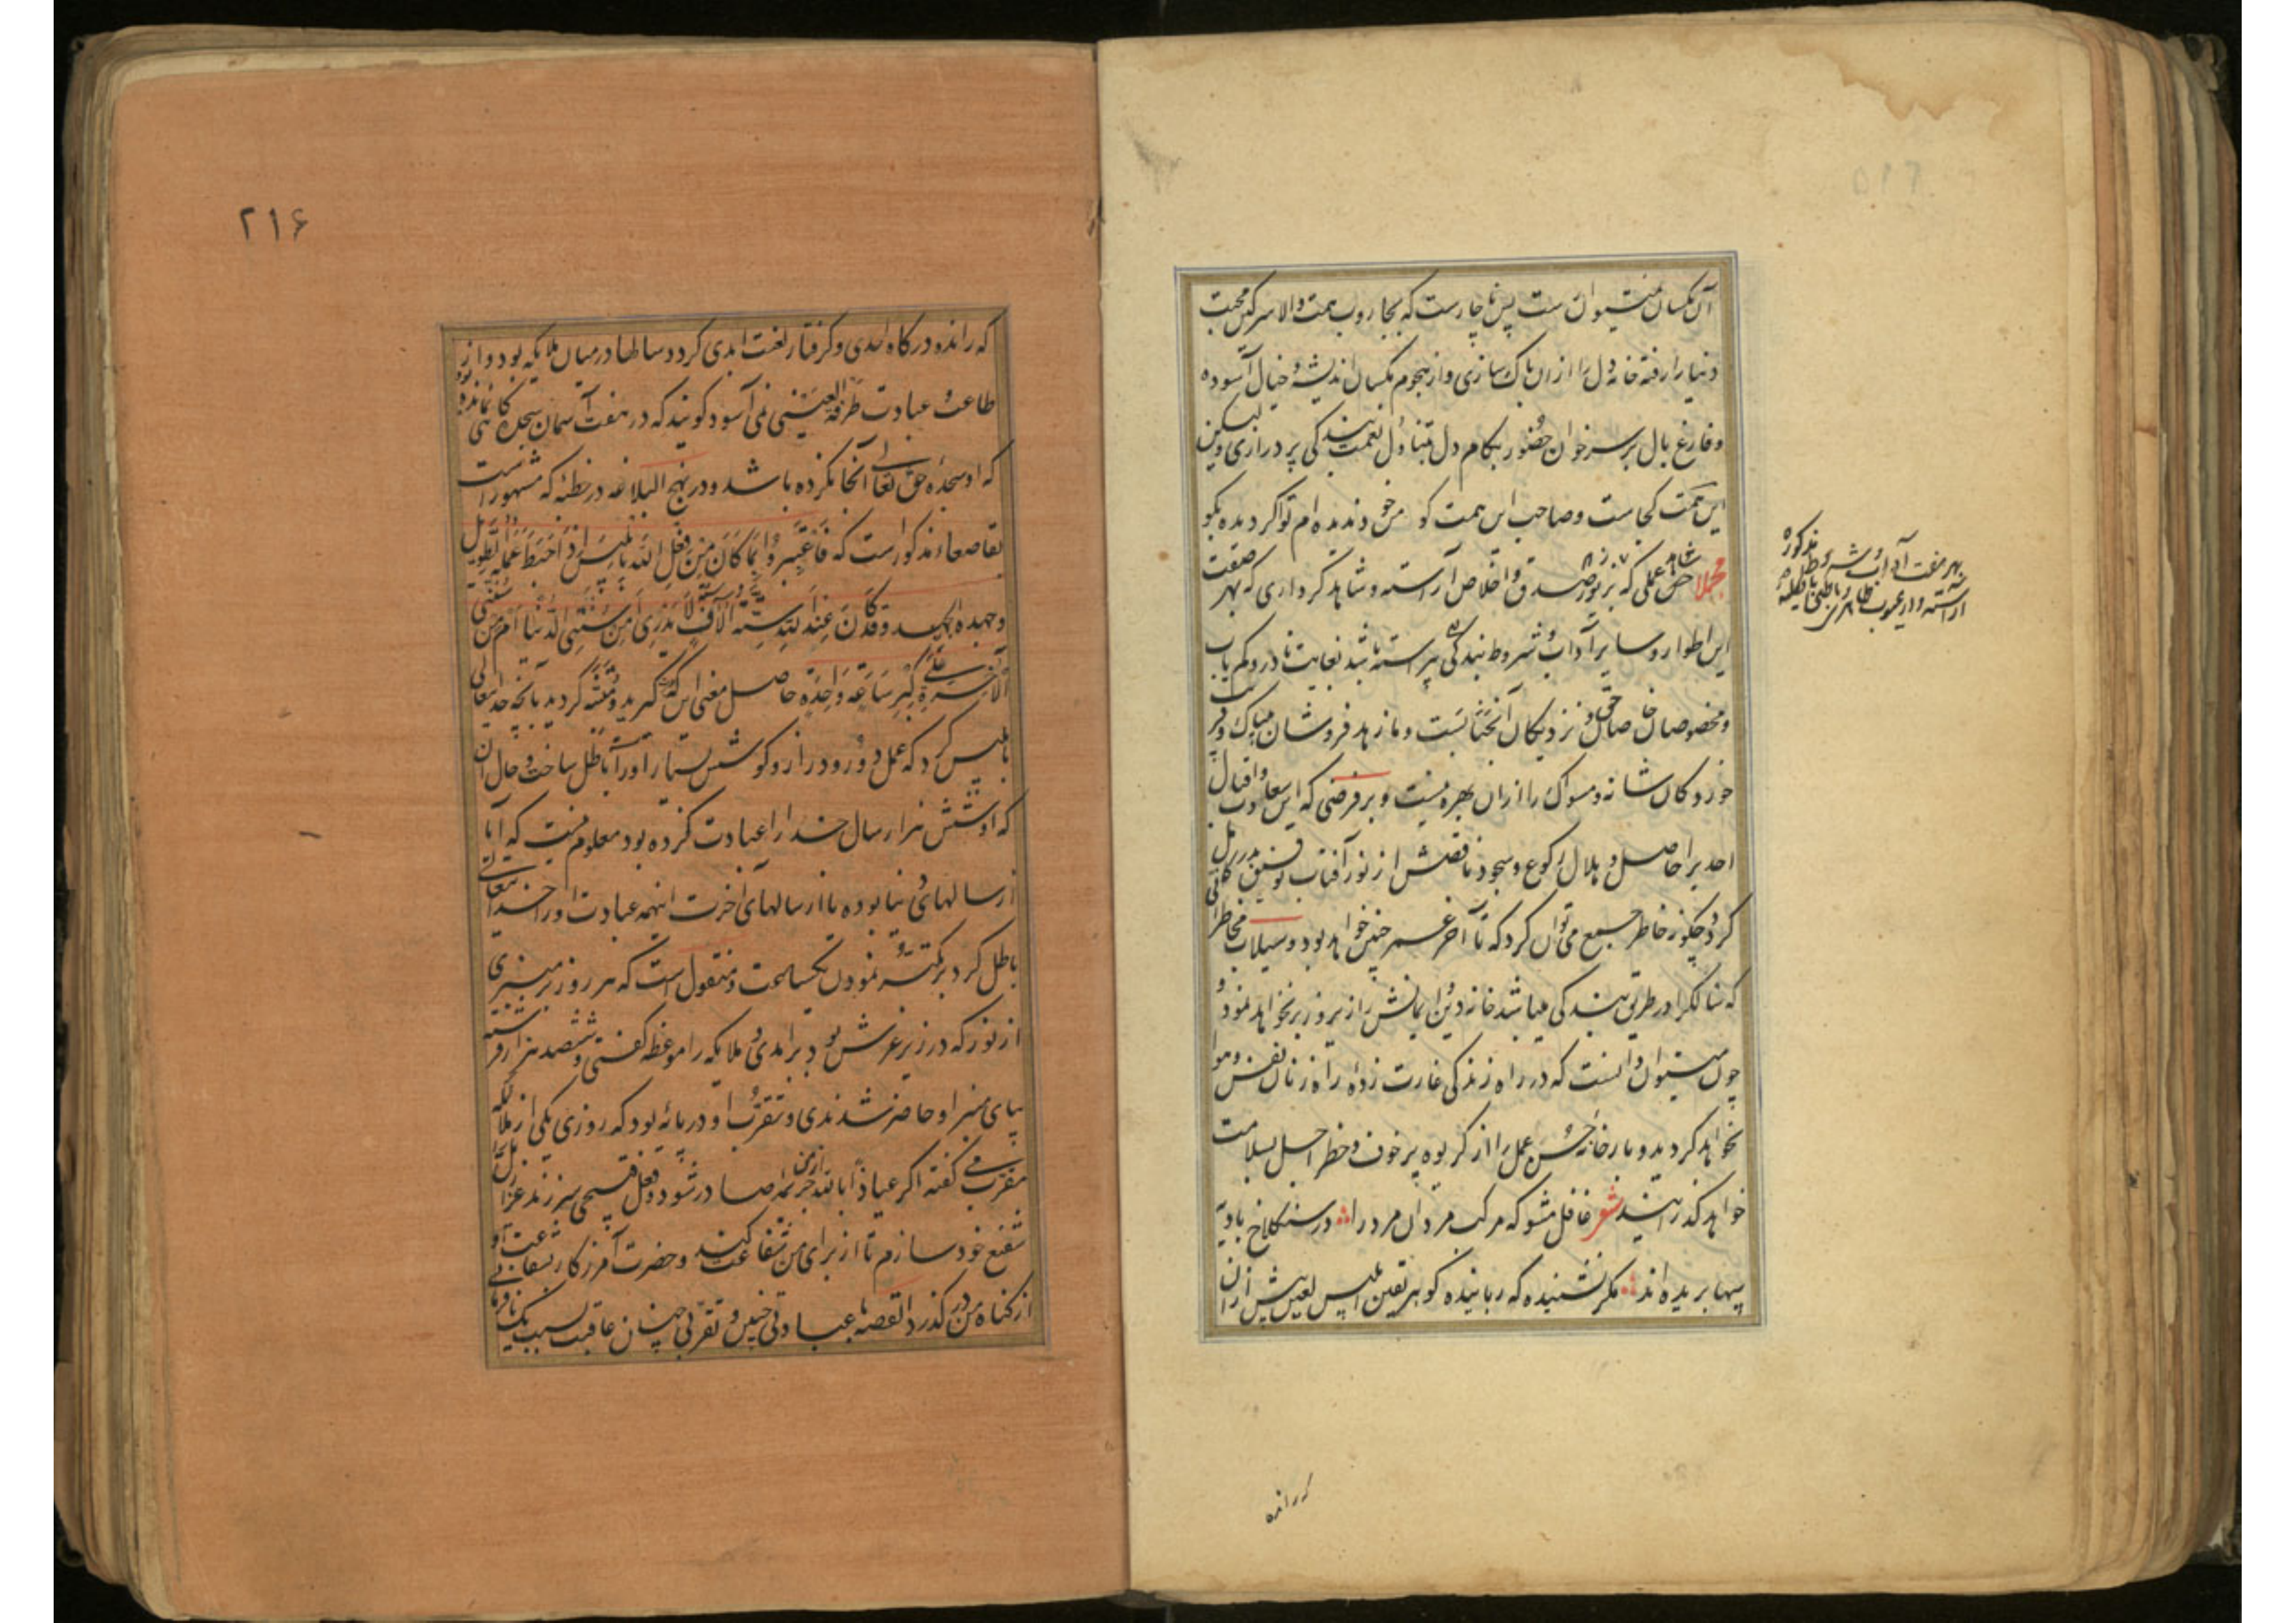 آن مکسان میتوان ست پس ناچارست که بجاروب همت والا سرکین محبت
دنیا را رفته خانه دل را ازان پاک سازی و از هجوم مکسان اندیشه و خیال آسوده
و فارغ بال بر سر خوان حضور بکام دل تناول نعمت بندکی پردازی ولیکن
این همت کجاست و صاحب این همت کو من خود ندیده ام تو اکر دیده بکو
مجملا عملی که بزیور صدق و اخلاص آراسته و شاهد کرداری که بهر صفت
این اطوار و سایر آداب و شروط بندکی پیراسته باشد بغایت نادر و کم یاب
و مخصوص خاصان حق و نزدیکان آنجنابست و ما زهد فروشان میان
خورد کان شانه و مسواک را ازان بهره نیست و بر فرضی که این سعادت و اقبال
احدیرا حاصل و هلال رکوع و سجود ناقصش از نور آفتاب توفیق بدر کامل
کردد چکونه خاطر جمع می توان کرد که تا آخر عمر چنین خواهد بود و سیلاب مخاطراتی
که سالکرا در طریق بندکی میباشد خانه دین و ایمانش را زیر و زبر نخواهد نمود و
چون میتوان دانست که در راه زندکی غارت زده راه زنان نفس و هوا
نخواهد کردید و بار خانه حسن عمل را از کریوه پر خوف و خطر اجل بسلامت
خواهد کذرانید شعر غافل مشو که مرکب مردان مرد را در سنکلاخ بادیه
پیها بریده اند مکر نشنیده که رباینده کوهر یقین ابلیس لعین پیش ازان
بهر صفت آداب و شروط مذکوره
آراسته و از عیوب ظاهری و باطنی
که رانده
۲۱۶
که رانده درکاه احدی و کرفتار لعنت ابدی کردد سالها در میان ملایکه بود و از
طاعت و عبادت طرفة العینی نمی آسود کویند که در هفت آسمان سجده کاهی نمانده بود
که او سجده حق تعالی آنجا نکرده باشد و در نهج البلاغه در خطبه که مشهور است
بقاصعه مذکور است که فَاعْتَبِرُوا بِمَا كَانَ مِنْ فِعْلِ اللهِ بِإِبْلِيسَ إِذْ أَحْبَطَ عَمَلَهُ الطَّوِيلَ
وَجَهْدَهُ الْجَهِيدَ وَقَدْ كَانَ عَبَدَ اللهَ سِتَّةَ آلَافِ سَنَةٍ لَا يُدْرَى أَمِنْ سِنِي الدُّنْيَا أَمْ مِنْ سِنِي
الْآخِرَةِ عَلَى كِبْرِ سَاعَةٍ وَاحِدَةٍ حاصل معنی این که عبرت کیرید و متنبه کردید بآنچه خدایتعالی
بابلیس کرد که عمل دور و دراز و کوشش بسیار او را باطل ساخت و حال آن
که او شش هزار سال خدا را عبادت کرده بود معلوم نیست که آیا
از سالهای دنیا بوده یا از سالهای آخرت اینهمه عبادت او را خدایتعالی
باطل کرد بر تکبر نمودن یکساعت و منقول است که هر روز بر منبری
از نور که در زیر عرش بود بر آمدی و ملایکه را موعظه کفتی و ششصد هزار فرشته
بپای منبر او حاضر شدندی و تقرب او در پایه بود که روزی یکی از ملایکه
مقرب می کفته اکر عیاذا بالله از من جریمه صادر شود و فعل قبیحی سر زند عزازیل را
شفیع خود سازم تا از برای من شفاعت کند و حضرت آمرزکار بشفاعت او
از کناه من در کذرد القصه با عبادتی چنین و تقربی چنان عاقبت بسبب یک نافرمانی